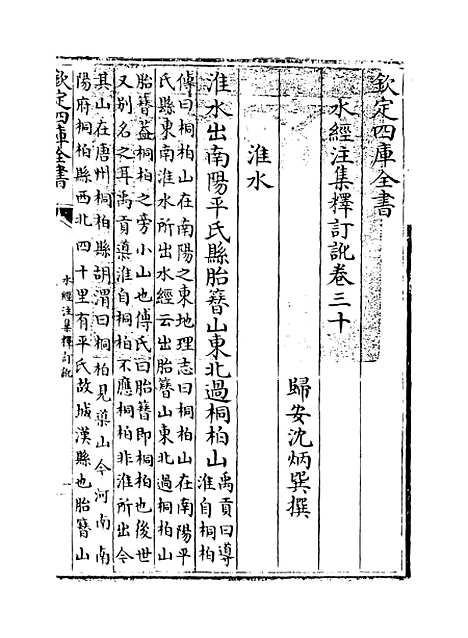 欽定四庫全書
水經注集釋訂訛卷三十
歸安沈炳巽撰
淮水
淮水出南陽平氏縣胎簪山東北過桐柏山
禹貢曰導
淮自桐柏
傳曰桐柏山在南陽之東地理志曰桐柏山在南陽平
氏縣東南淮水所出水經云出胎簪山東北過桐柏山
胎簪蓋桐柏之旁小山也傅氏曰胎簪即桐柏也後世
又别名之耳禹貢導淮自桐柏不應桐柏非淮所出今
其山在唐州桐柏縣胡渭曰桐柏見蘂山今河南南
陽府桐柏縣西北四十里有平氏故城漢縣也胎簪山
欽定四庫全書
水經注集釋訂訛
一